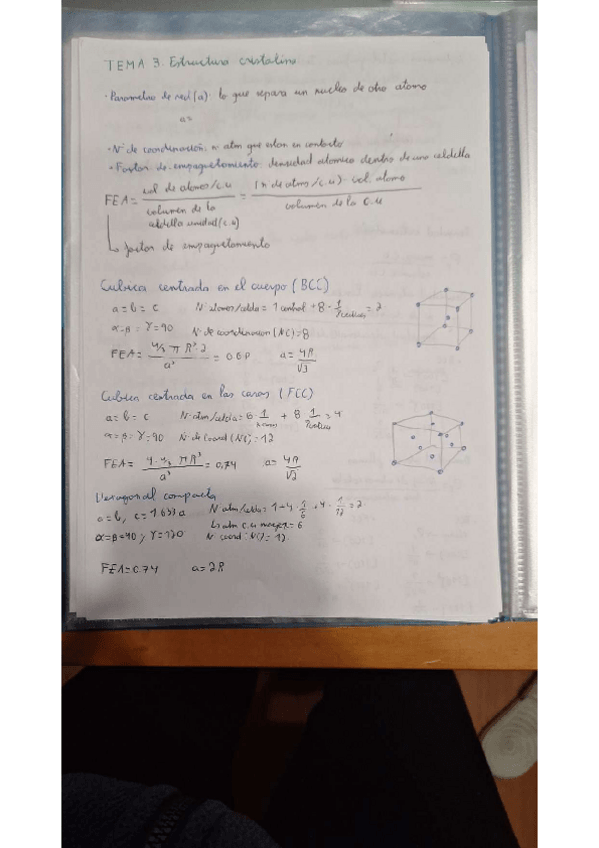 TEMA 3. Estructura cristalina
· Parametro de red (a): lo que separa un nucleo de otro atomo
a=
· Nº de coordinacion: nº atm que estan en contacto
· Factor de empaquetamiento: densidad atomica dentro de una celdilla
FEA = vol de atomos/c.u / volumen de la celdilla unidad (c.u) = (n de atms/c.u) · vol. atomo / volumen de la c.u
↳ factor de empaquetamiento
Cubica centrada en el cuerpo (BCC)
a = b = c Nº atomos/celda = 1 central + 8 · 1/8 = 2
α = β = γ = 90 Nº de coordinacion (NC) = 8
FEA = 4/3 π R³ · 2 / a³ = 0.68 a = 4R/√3
Cubica centrada en las caras (FCC)
a = b = c Nº atm/celda = 6 · 1/2 + 8 · 1/8 = 4
α = β = γ = 90 Nº de coord (NC) = 12
FEA = 4 · 4/3 π R³ / a³ = 0,74 a = 4R/√2
Hexagonal compacta
a = b, c = 1.633 a Nº atm/celda = 1 + 4 · 1/6 + 4 · 1/12 = 2
↳ atm c.u mayor = 6
α = β = 90 y γ = 120 Nº coord (NC) = 12
FEA = 0.74 a = 2R